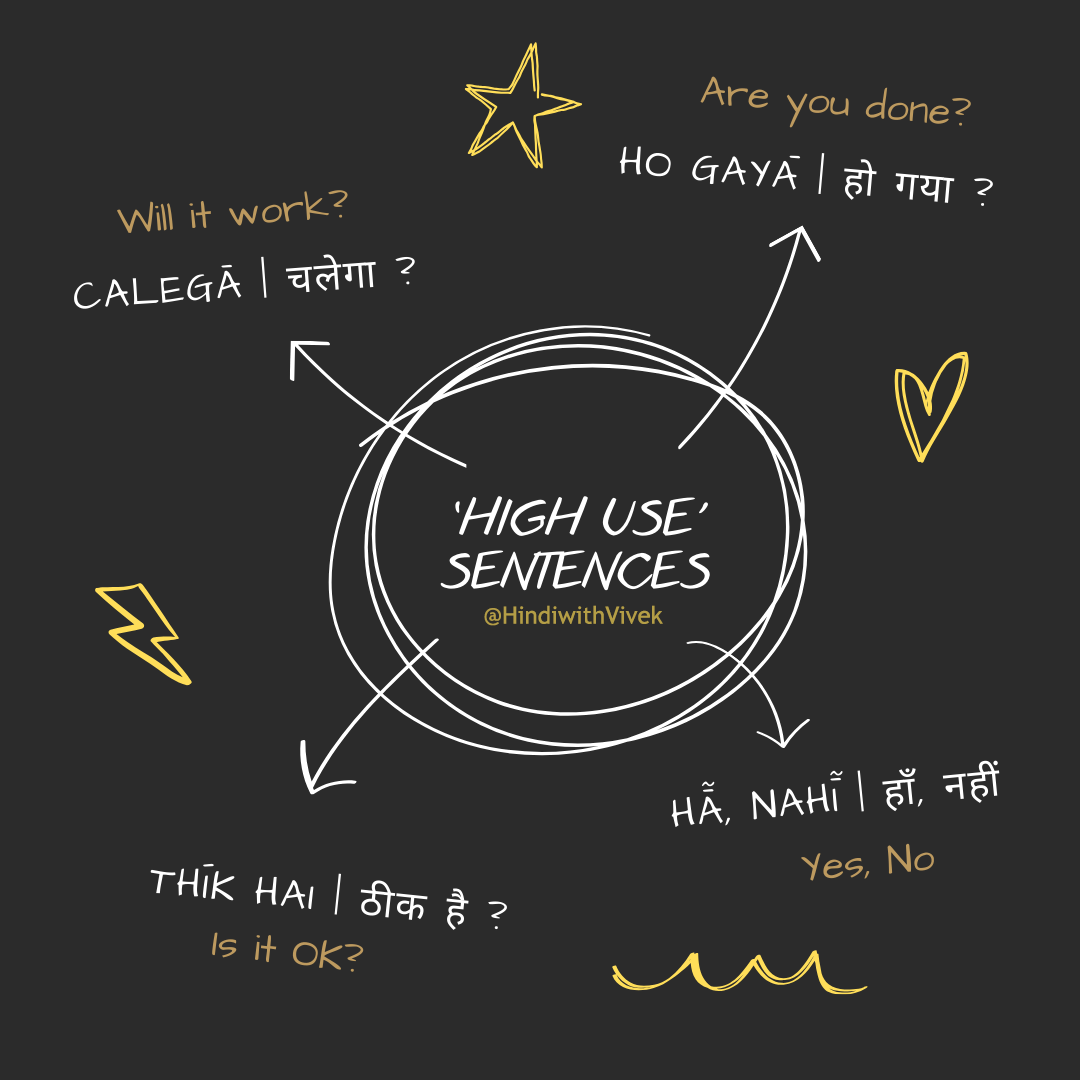 Are you done?
HO GAYĀ | हो गया ?
Will it work?
CALEGĀ | चलेगा ?
‘HIGH USE’
SENTENCES
@HindiwithVivek
HĀ̃, NAHĪ̃ | हाँ, नहीं
Yes, No
THĪK HAI | ठीक है ?
Is it OK?